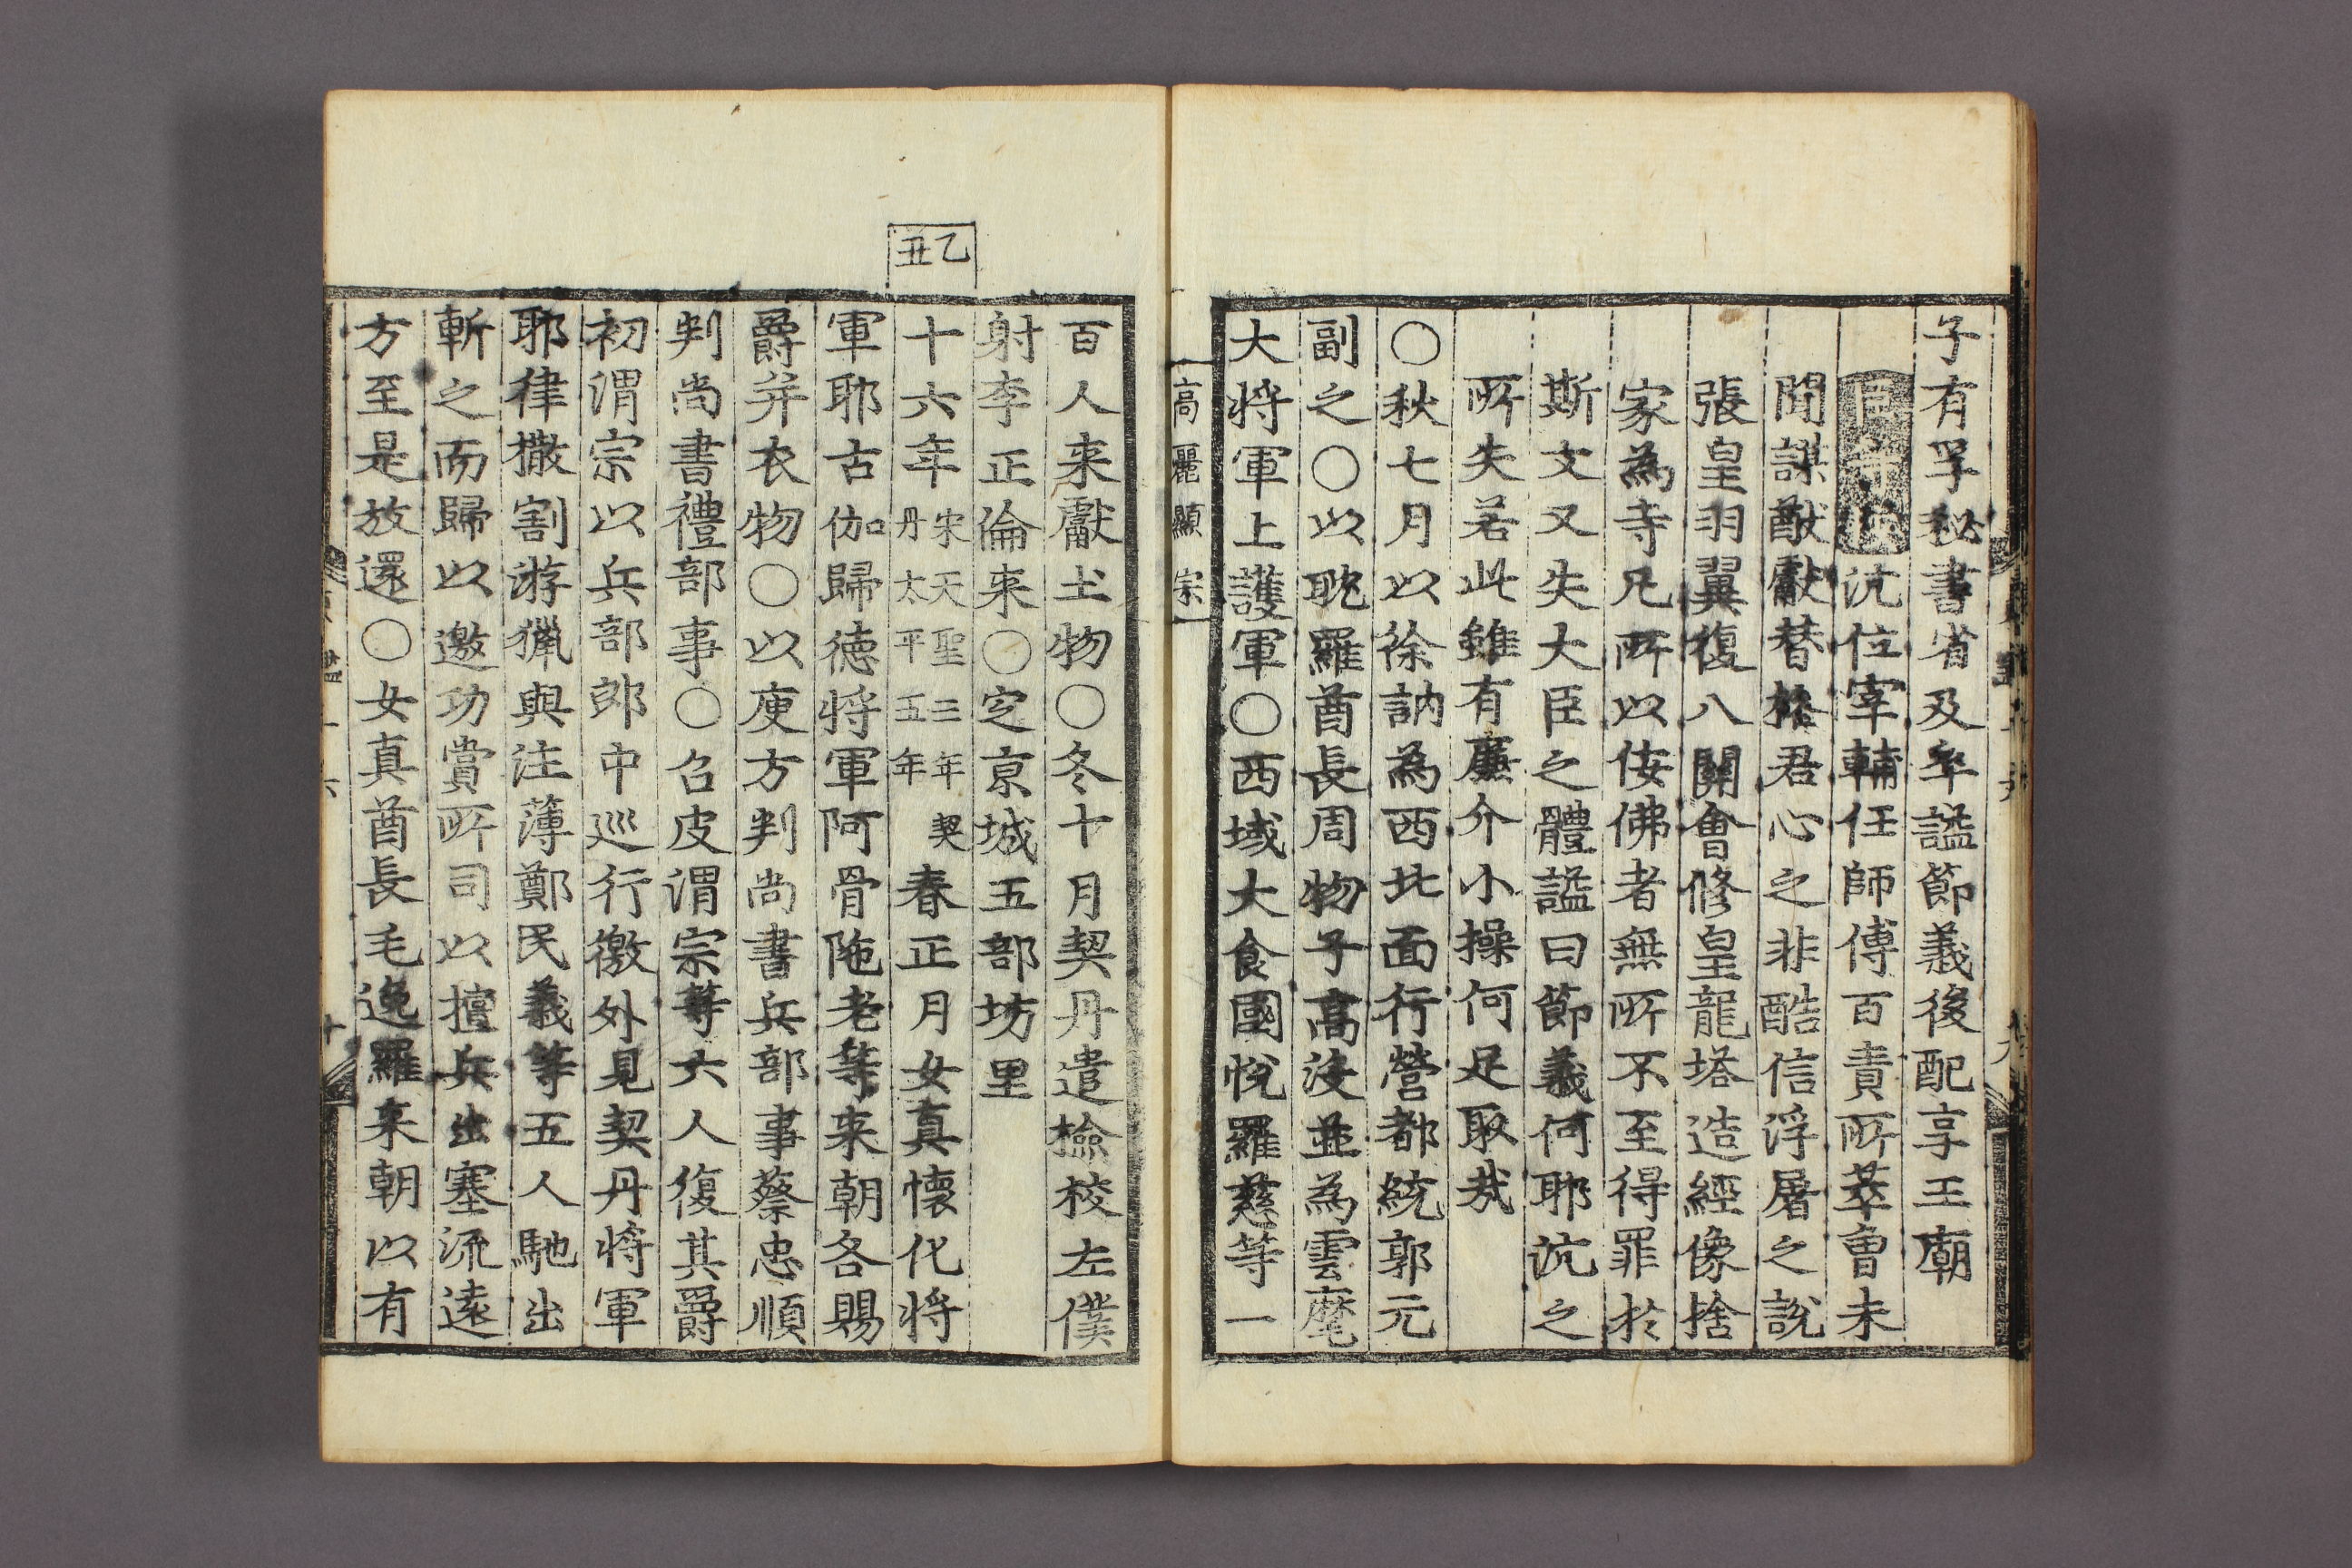 子有孚秘書省及卒謚節義後配享王廟
沆位宰輔任師傅百責所萃曾未
聞謀猷獻替格君心之非酷信浮屠之說
張皇羽翼復八關會修皇龍塔造經像捨
家為寺凡所以佞佛者無所不至得罪於
斯文又失大臣之體謚曰節義何耶沆之
所失若此雖有廉介小操何足取㢤
〇秋七月以徐訥為西北面行營都統郭元
副之〇以耽羅酋長周物子高沒並為雲麾
大將軍上護軍〇西域大食國悅羅慈等一
高麗顯宗
百人来獻土物〇冬十月契丹遣撿校左僕
射李正倫来〇定京城五部坊里
乙丑
十六年宋天聖三年契丹太平五年春正月女真懷化將
軍耶古伽歸德將軍阿骨陁老等来朝各賜
爵并衣物〇以庾方判尚書兵部事蔡忠順
判尚書禮部事〇召皮渭宗等六人復其爵
初渭宗以兵部郎中巡行徼外見契丹將軍
耶律撒割游獵與注薄鄭民義等五人馳出
斬之而歸以邀功賞所司以擅兵出塞流遠
方至是放還〇女真酋長毛逸羅来朝以有